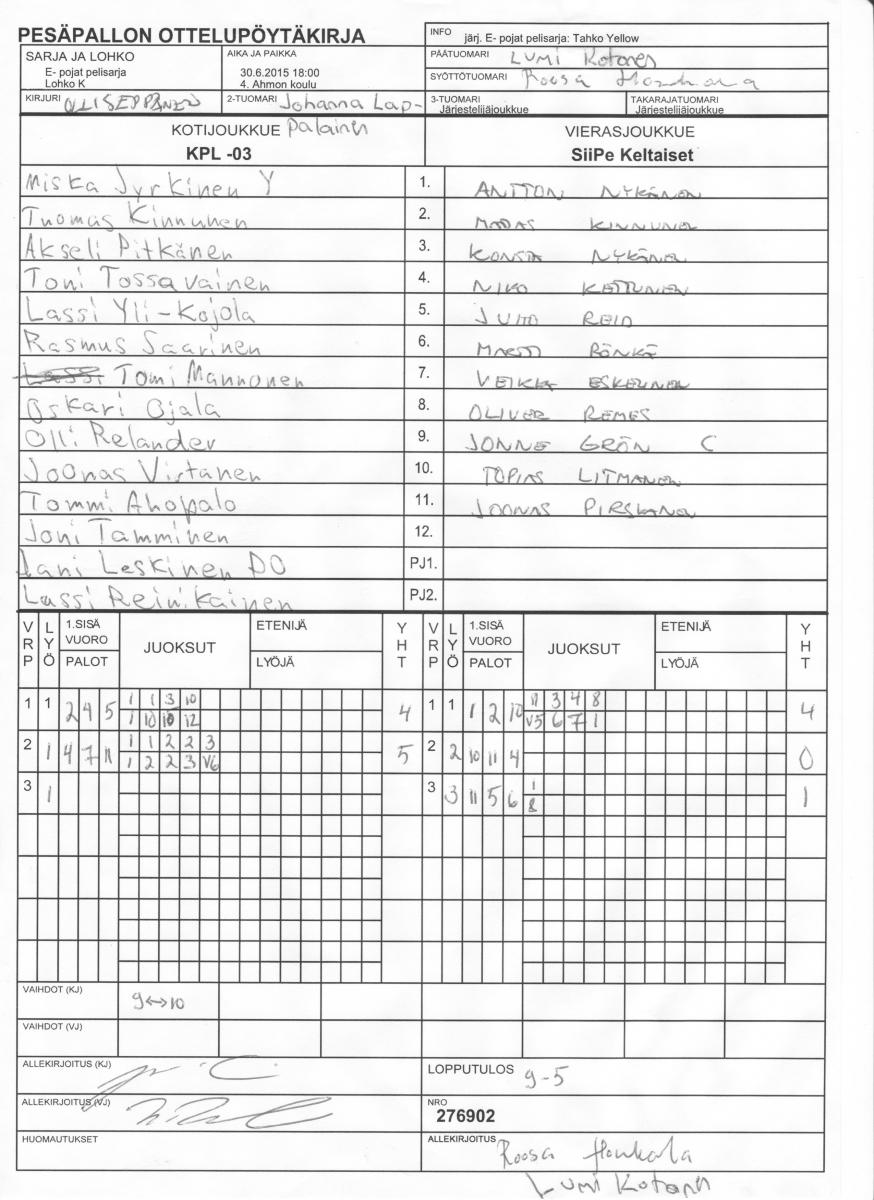 PESÄPALLON OTTELUPÖYTÄKIRJA
INFO järj. E- pojat pelisarja: Tahko Yellow
SARJA JA LOHKO
E- pojat pelisarja
Lohko K
AIKA JA PAIKKA
30.6.2015 18:00
4. Ahmon koulu
PÄÄTUOMARI Lumi Kotonen
SYÖTTÖTUOMARI Roosa
KIRJURI OLLI SEPPÄNEN
2-TUOMARI Johanna Lap-
palainen
3-TUOMARI
Järjestelijäjoukkue
TAKARAJATUOMARI
Järjestelijäjoukkue
KOTIJOUKKUE
KPL -03
VIERASJOUKKUE
SiiPe Keltaiset
Miska Jyrkinen Y 1. ANTTON NYKÄNEN
Tuomas Kinnunen 2. KINNUNEN
Akseli Pitkänen 3. KONSTA NYKÄNEN
Toni Tossavainen 4. NIKO KETTUNEN
Lassi Yli-Kojola 5. REID
Rasmus Saarinen 6. RÖNKÄ
Lassi Tomi Mannonen 7. ESKELINEN
Oskari Ojala 8. OLIVER REMES
Olli Relander 9. JONNE GRÖN C
Joonas Virtanen 10. TOPIAS LITMANEN
Tommi Ahopalo 11. JOONAS PIRSKANEN
Joni Tamminen 12.
Jani Leskinen PO PJ1.
Lassi Reinikainen PJ2.
VRP LYÖ 1.SISÄ VUORO PALOT JUOKSUT ETENIJÄ LYÖJÄ YHT VRP LYÖ 1.SISÄ VUORO PALOT JUOKSUT ETENIJÄ LYÖJÄ YHT
1 1 2 4 5 1 1 3 10 4 1 1 1 2 10 11 3 4 8 4
1 10 10 12 V5 6 7 1
2 1 4 7 11 1 1 2 2 3 5 2 2 10 11 4 0
1 2 2 3 V6
3 1 3 3 11 5 6 1 1
8
VAIHDOT (KJ) 9↔10
VAIHDOT (VJ)
ALLEKIRJOITUS (KJ)
LOPPUTULOS 9-5
ALLEKIRJOITUS (VJ)
NRO
276902
HUOMAUTUKSET
ALLEKIRJOITUS Roosa Honkala
Lumi Kotonen